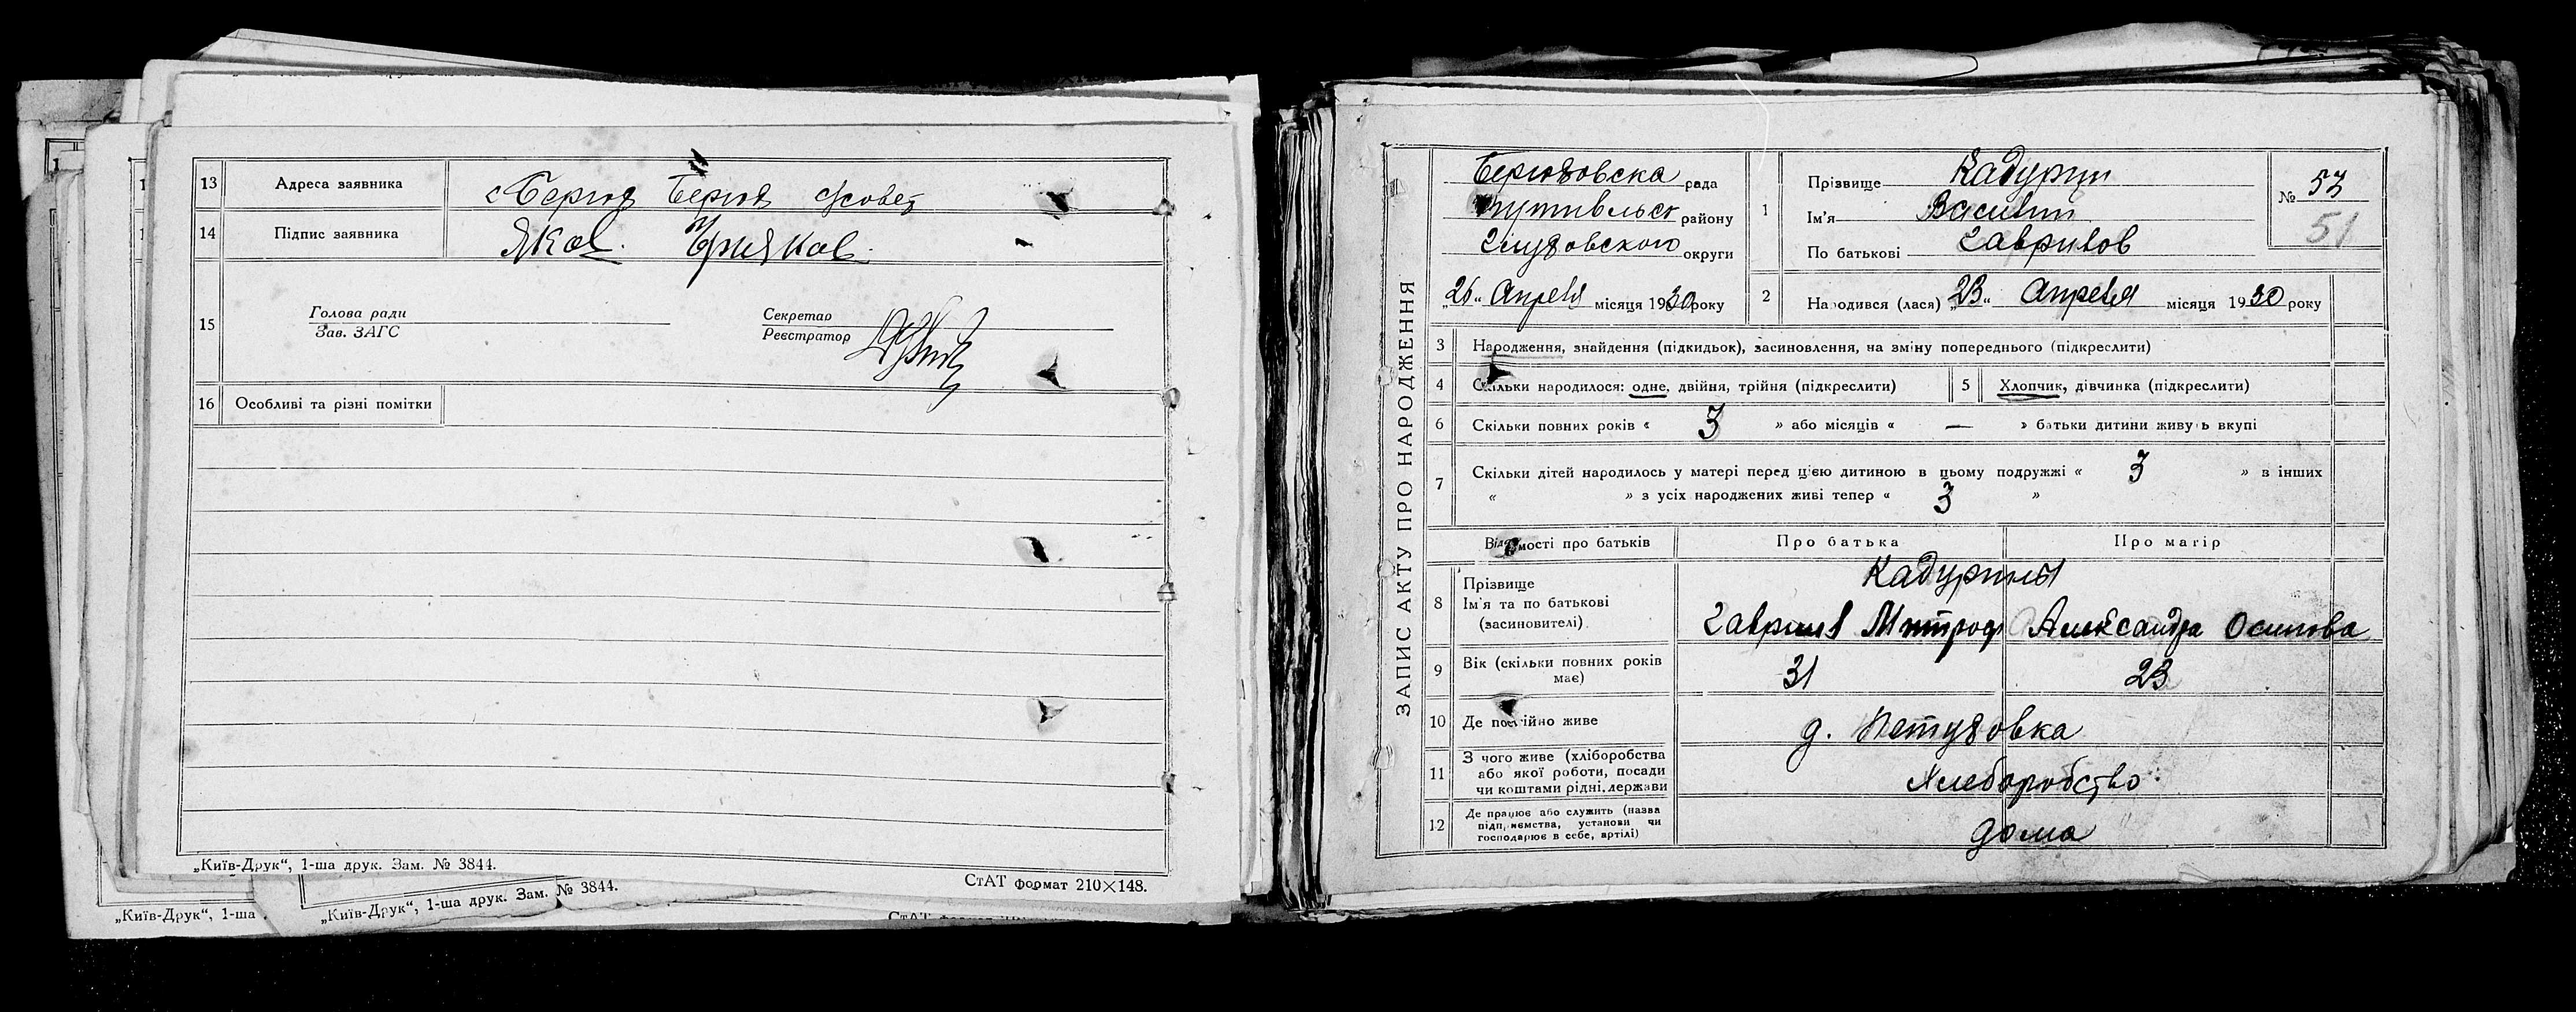 13 Адреса заявника
14 Підпис заявника Яков
15 Голова ради
Зав. ЗАГС
Секретар
Реєстратор
16 Особливі та різні помітки
„Київ-Друк“, 1-ша друк. Зам. № 3844.
СтАТ формат 210×148.
„Київ-Друк“, 1-ша
„Київ-Друк“, 1-ша друк. Зам. № 3844.
ЗАПИС АКТУ ПРО НАРОДЖЕННЯ
рада
района
Глуховского округи
„26“ Апреля місяця 1930 року
1 Прізвище Кадурин
Ім'я Василий
По батькові Гаврилов
№ 53
51
2 Народився (лася) „23“ Апреля місяця 1930 року
3 Народження, знайдення (підкидьок), засиновлення, на зміну попереднього (підкреслити)
4 Скільки народилося: одне, двійня, трійня (підкреслити) 5 Хлопчик, дівчинка (підкреслити)
6 Скільки повних років « 3 » або місяців « — » батьки дитини живуть вкупі
7 Скільки дітей народилось у матері перед цією дитиною в цьому подружжі « 3 » в інших
« » з усіх народжених живі тепер « 3 »
Відомості про батьків Про батька Про матір
8 Прізвище Кадурины
Ім'я та по батькові
(засиновителі) Гаврил Митроф Александра Осипова
9 Вік (скільки повних років має) 31 23
10 Де постійно живе д.
11 З чого живе (хліборобства
або якої роботи, посади
чи коштами рідні, держави Хлеборобство
12 Де працює або служить (назва
підприємства, установи чи
господарює в себе, артілі) дома